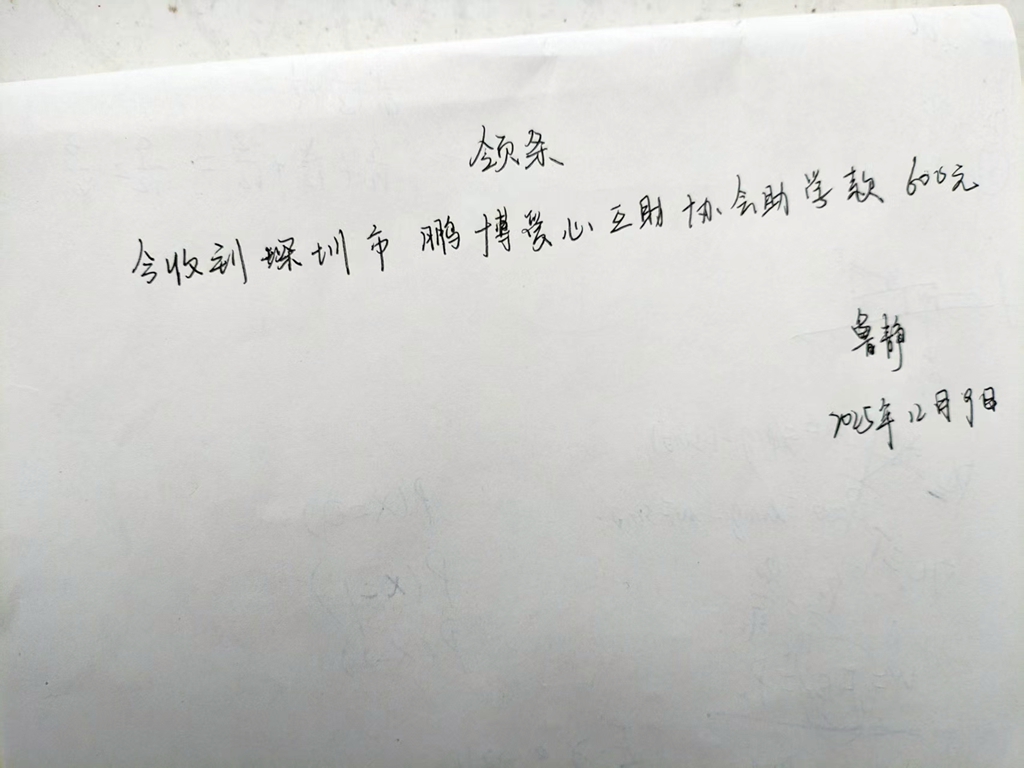 领条
今收到深圳市鹏博爱心互助协会助学款600元
鲁静
2025年12月9日